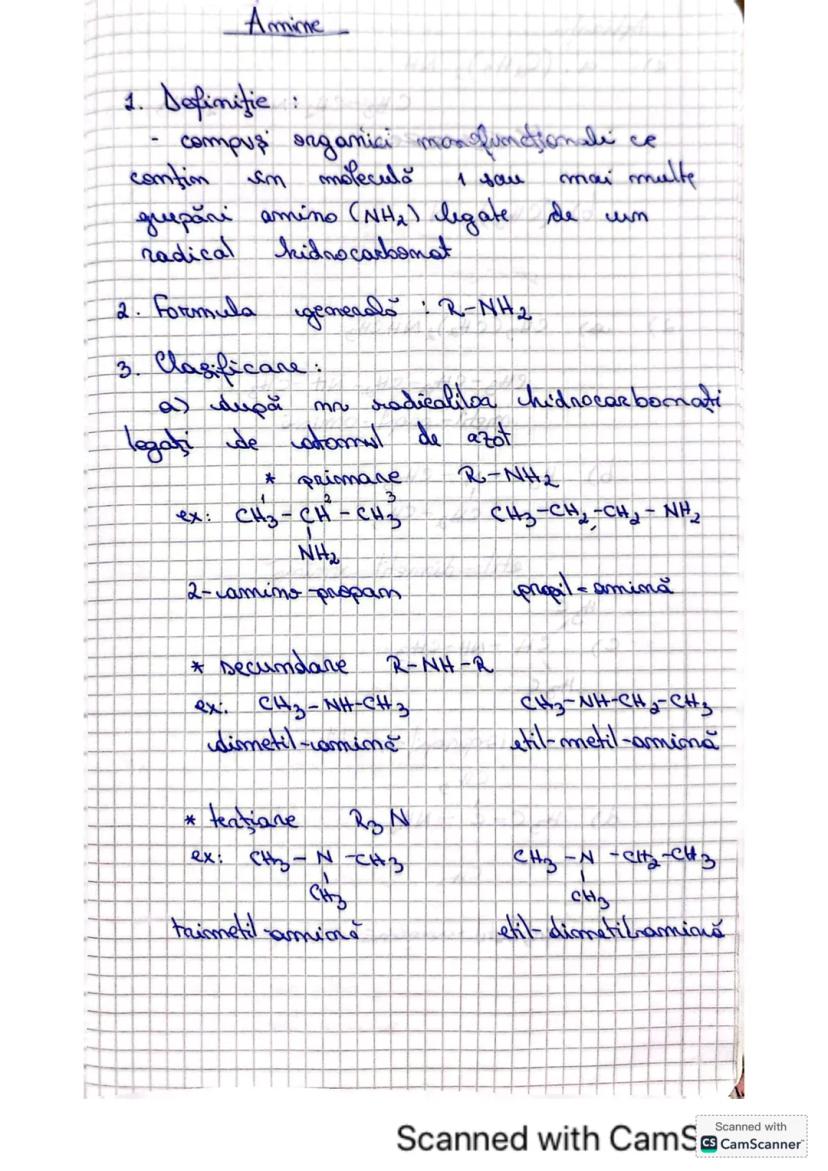 Amine
1. Definiţie :
- compuşi organici monofuncţionali ce
conţin în moleculă 1 sau mai multe
grupări amino (NH2) legate de un
radical hidrocarbonat
2. Formula generală : R-NH2
3. Clasificare :
a) după nr radicalilor hidrocarbonaţi
legaţi de atomul de azot
* primare R-NH2
1 2 3
ex: CH3 - CH - CH3 CH3-CH2-CH2-NH2
NH2
2-amino-propan propil-amină
* secundare R-NH-R
ex: CH3-NH-CH3 CH3-NH-CH2-CH3
dimetil-amină etil-metil-amină
* terţiare R3N
ex: CH3 - N - CH3 CH3 - N - CH2-CH3
CH3 CH3
trimetil-amină etil-dimetil-amină
Scanned with CamS
Scanned with
CS CamScanner